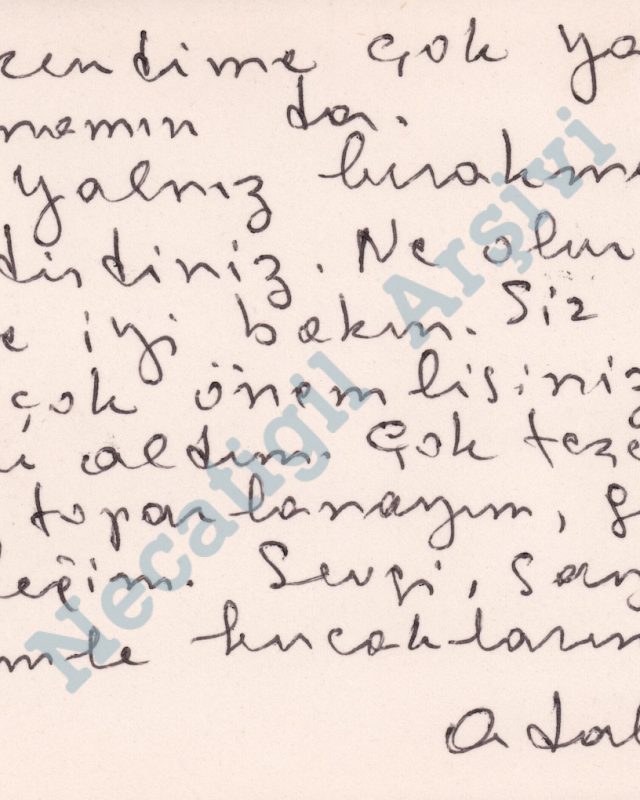 kendime çok ya
nemin da.
yalnız bırakma
dirdiniz. Ne olur
e iyi bakın. Siz
çok önemlisiniz
i aldım. Çok teşe
toparlanayım, g
leğim. Sevgi, say
mle kucaklarım
Necatigil Arşivi